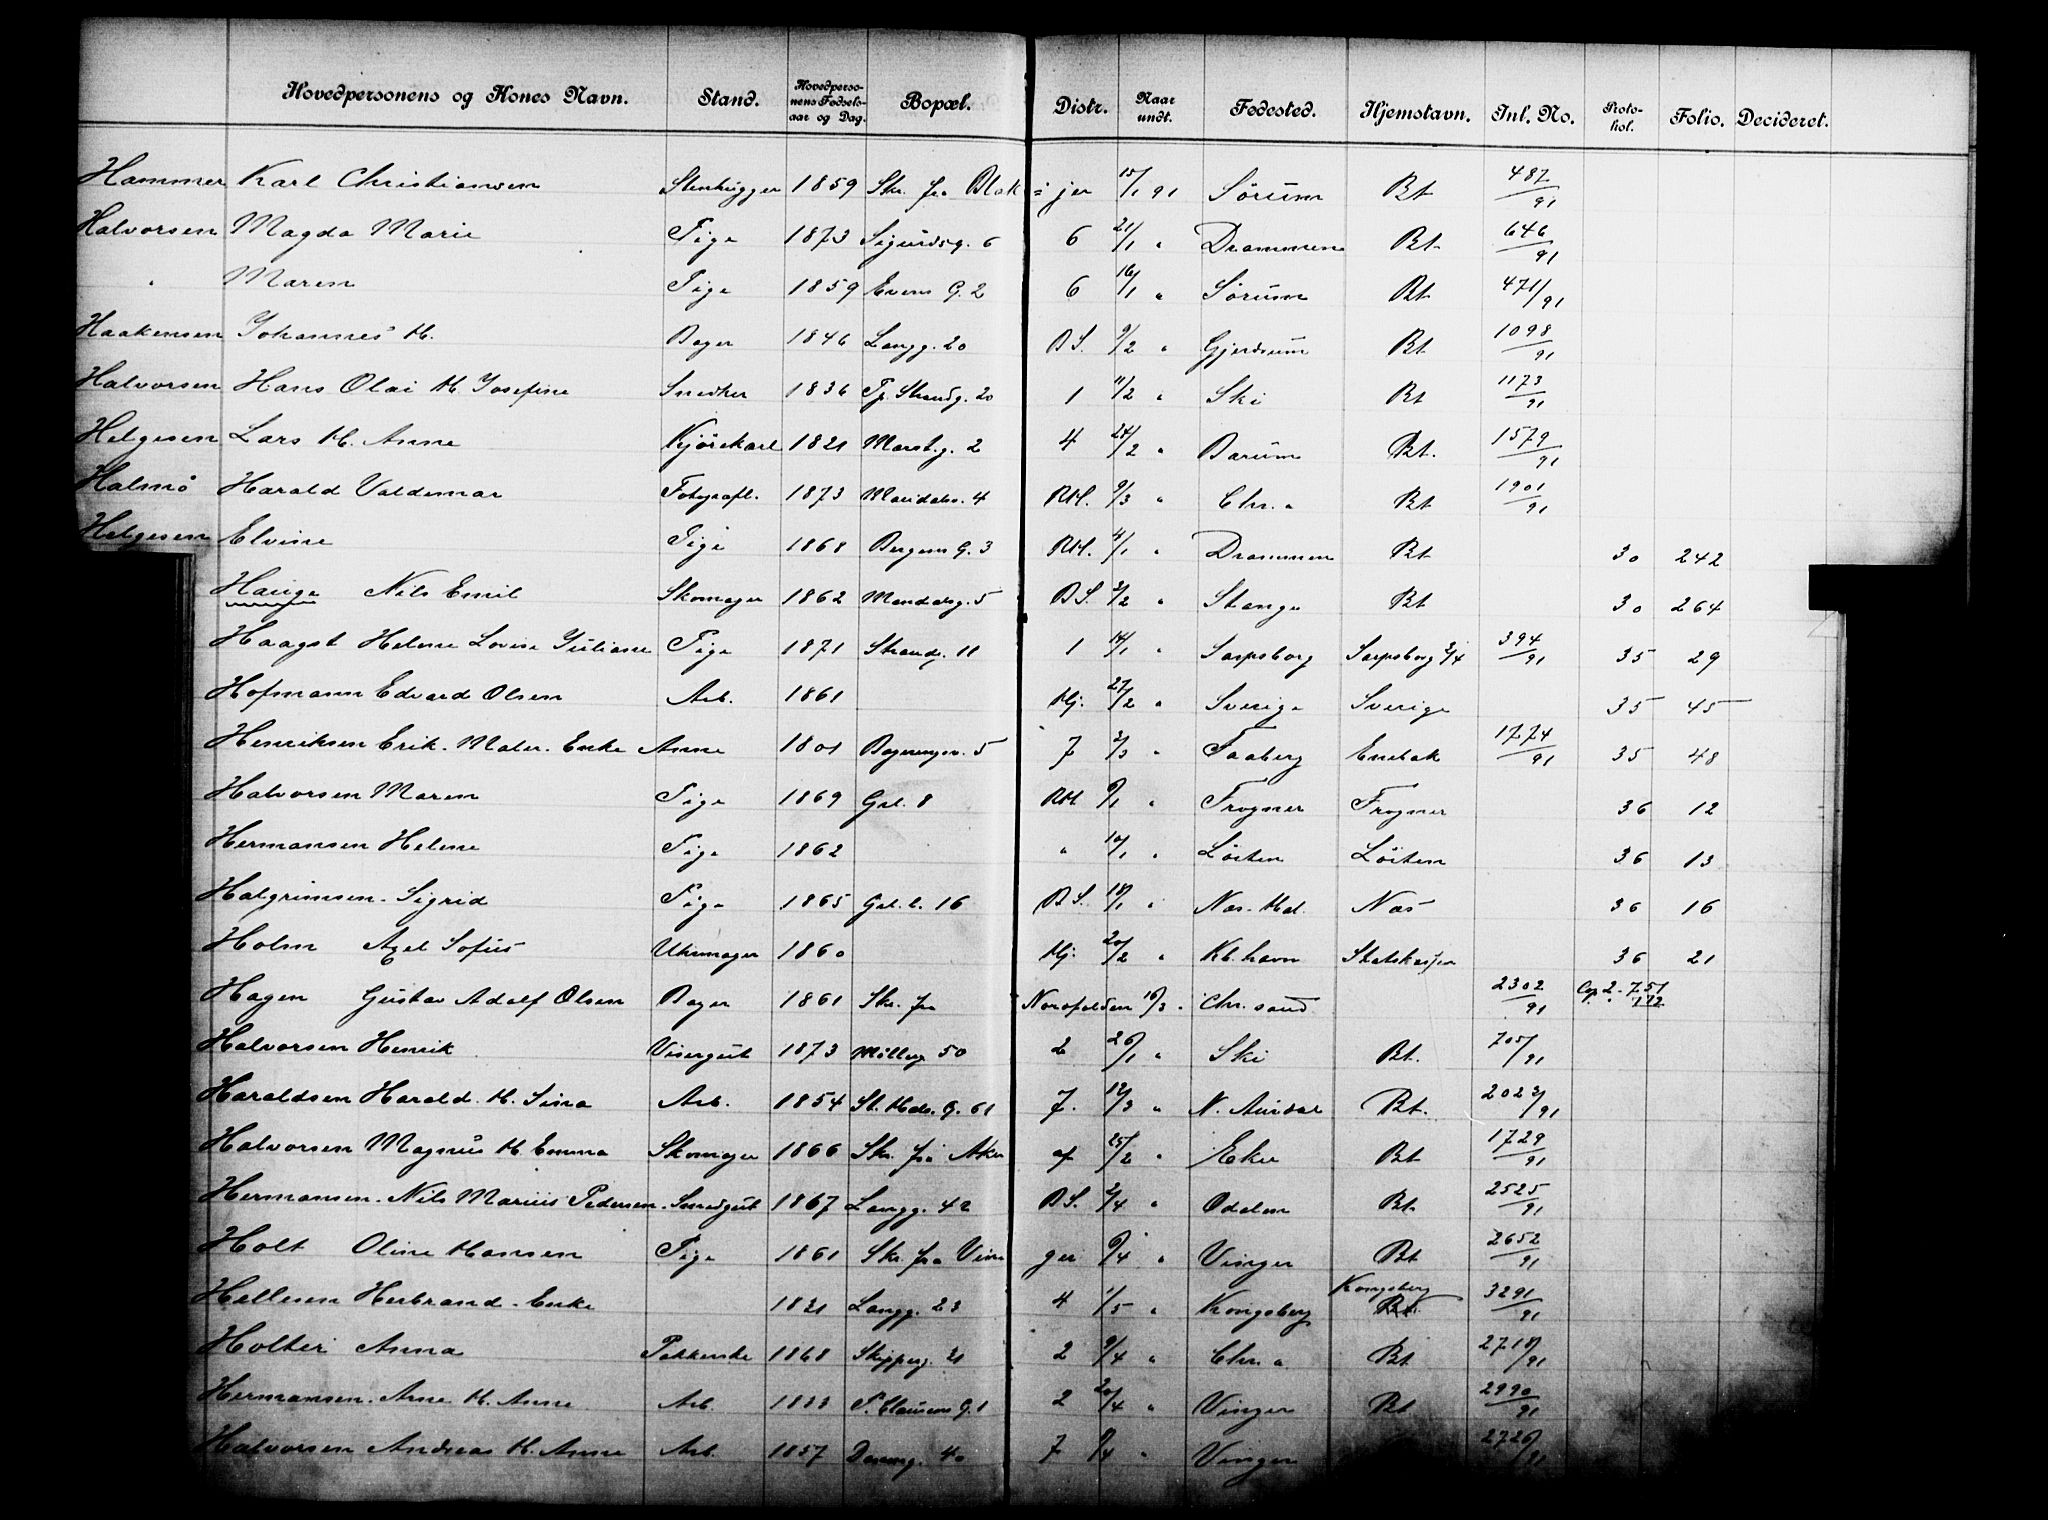 Hovedpersonens og Kones Navn. Stand. Hovedpersonens Fødselsaar og Dag. Bopæl. Distr. Naar undt. Fødested. Hjemstavn. Inl. No. Protokol. Folio. Decideret.
Hammer Karl Christiansen Stenhugger 1859 Skr. fra Blak= jer 15/1 91 Sørum Bt 487/91
Halvorsen Magda Marie Pige 1873 Sigurdsg. 6 6 21/1 " Drammen Bt. 646/91
" Maren Pige 1859 Evens G. 2 6 16/1 " Sørum Bt 471/91
Haakensen Johannes H. Bager 1846 Langg. 20 BS. 9/2 " Gjerdrum Bt 1098/91
Halvorsen Hans Olai H. Josefine Snedker 1836 Strandg. 20 1 11/2 " Ski Bt 1173/91
Helgesen Lars H. Anne Kjørekarl 1821 2 4 24/2 " Bærum Bt. 1579/91
Halmø Harald Valdemar Fotografl. 1873 Maridalsv. 4 RH. 9/3 " Chr.a Bt 1901/91
Helgesen Elvine Pige 1868 Bergens G. 3 RH. 4/1 " Drammen Bt 30 242
Hauge Nils Emil Skomager 1862 5 BS. 3/2 " Stange Bt 30 264
Haagst Helene Lovise Juliane Pige 1871 Strandg. 11 1 14/1 " Sarpsborg Sarpsborg 394/91 35 29
Hofmann Edvard Olsen Arb. 1861 Hj. 27/2 " Sverige Sverige 35 45
Henriksen Erik. Maler. Enke Anne 1801 5 7 3/3 " Faaberg Enebak 1774/91 35 48
Halvorsen Maren Pige 1869 Grl. 8 RH 9/1 " Frogner Frogner 36 12
Hermansen Helene Pige 1862 " 10/1 " Løiten Løiten 36 13
Halgrimsen. Sigrid Pige 1865 Grl. l. 16 BS. 18/1 " Nes. Hal. Nes 36 16
Holm Axel Sofus Uhrmager 1860 Hj. 20/2 " Kb.havn Statskassen 36 21
Hagen Gustav Adolf Olsen Bager 1861 Skr. fra Norefolden 16/3 " Chr.sand 2302/91 Cop 2. 751 " 172
Halvorsen Henrik Visergut 1873 Møllerg. 50 2 26/1 " Ski Bt. 705/91
Haraldsen Harald. H. Sina Arb. 1854 St. Hds. G. 61 7. 12/3 " N. Aurdal Bt. 2023/91
Halvorsen Magnus H. Emma Skomager 1866 Skr. fra Aker af 25/2 " Eker Bt 1729/91
Hermansen. Nils Marius Pedersen. Smedgut 1867 Langg. 42 BS. 2/4 " Odalen Bt. 2525/91
Holt Oline Hansen Pige 1861 Skr. fra Vin= ger 9/4 " Vinger Bt 2652/91
Hellesen Herbrand. Enke 1821 Langg. 23 4 1/5 " Kongsberg Kongsberg Bt. 3291/91
Holter Anna Pakkerske 1868 Skipperg. 21 2 9/4 " Chr.a Bt 2718/91
Hermansen. Arne H. Anne Arb. 1833 G. 1 2 20/4 " Vinger Bt 2990/91
Halvorsen Andreas H. Anne Arb. 1857 40 7 9/4 " Vinger 2726/91